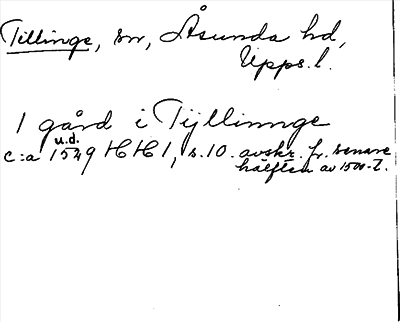 Tillinge, sn, Åsunda hd,
Upps. l.
1 gård i Tijllinnge
u.d.
c:a 1549 HH 1, s. 10. avskr. fr. senare
hälften av 1500-t.